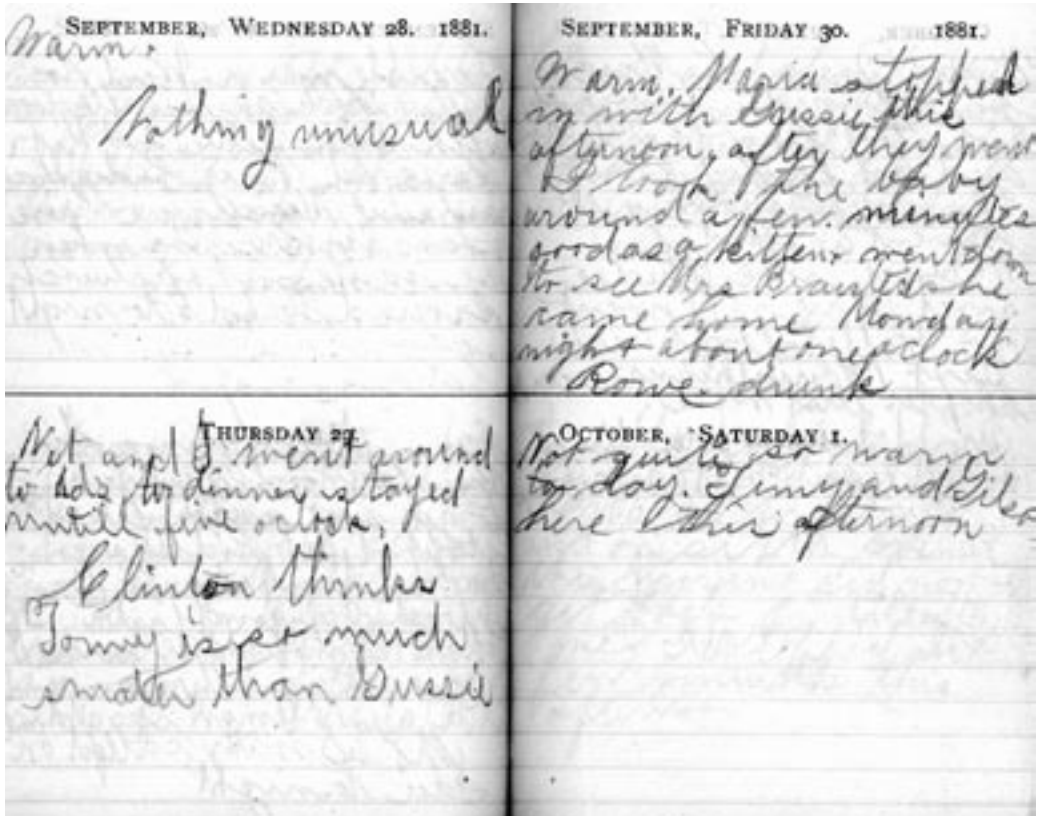 SEPTEMBER, WEDNESDAY 28. 1881.
Warm.
Nothing unusual
THURSDAY 29.
and I went around
to Ads to dinner stayed
untill five oclock.
Clinton thinks
Tomy is so much
smater than Gussie
SEPTEMBER, FRIDAY 30. 1881.
Warm. Maria stopped
in with Gussie this
afternoon, after they went
I took the baby
around a few minutes
good as a kitten. went down
to see Mrs she
came home Monday
night about one oclock
Rowe drunk
OCTOBER, SATURDAY 1.
Not quite so warm
to day. Jimy and
here this afternoon